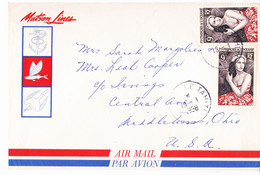 Matson Lines
Mrs Sarah Margolies
Mrs. Leah Cooper
c/o Irvings
Central Ave
Middletown, Ohio
U.S.A.
TAHITI
AIR MAIL
PAR AVION